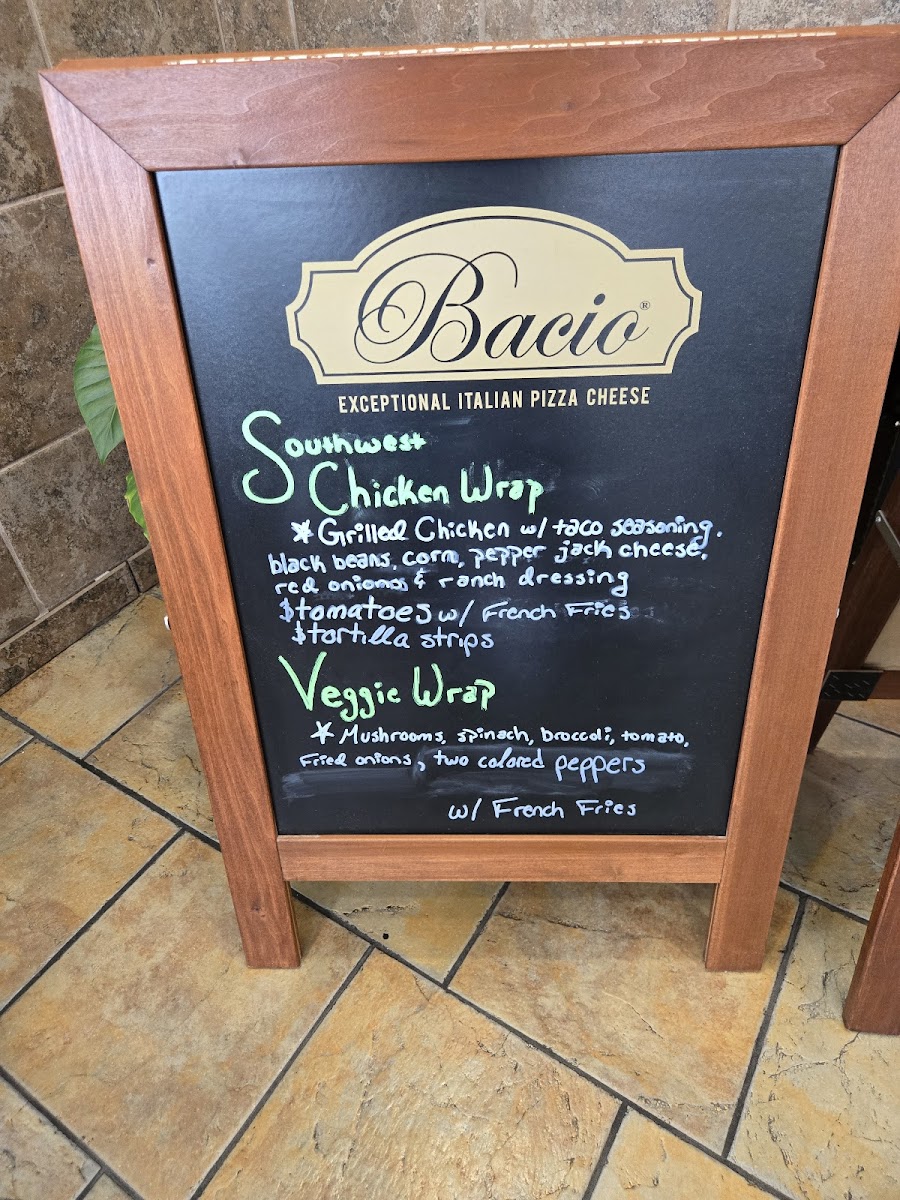 Bacio®
EXCEPTIONAL ITALIAN PIZZA CHEESE
Southwest
Chicken Wrap
* Grilled Chicken w/ taco seasoning.
black beans, corn, pepper jack cheese,
red onions & ranch dressing
$tomatoes w/ French Fries
$tortilla strips
Veggie Wrap
* Mushrooms, spinach, broccoli, tomato,
Fried onions, two colored peppers
w/ French Fries